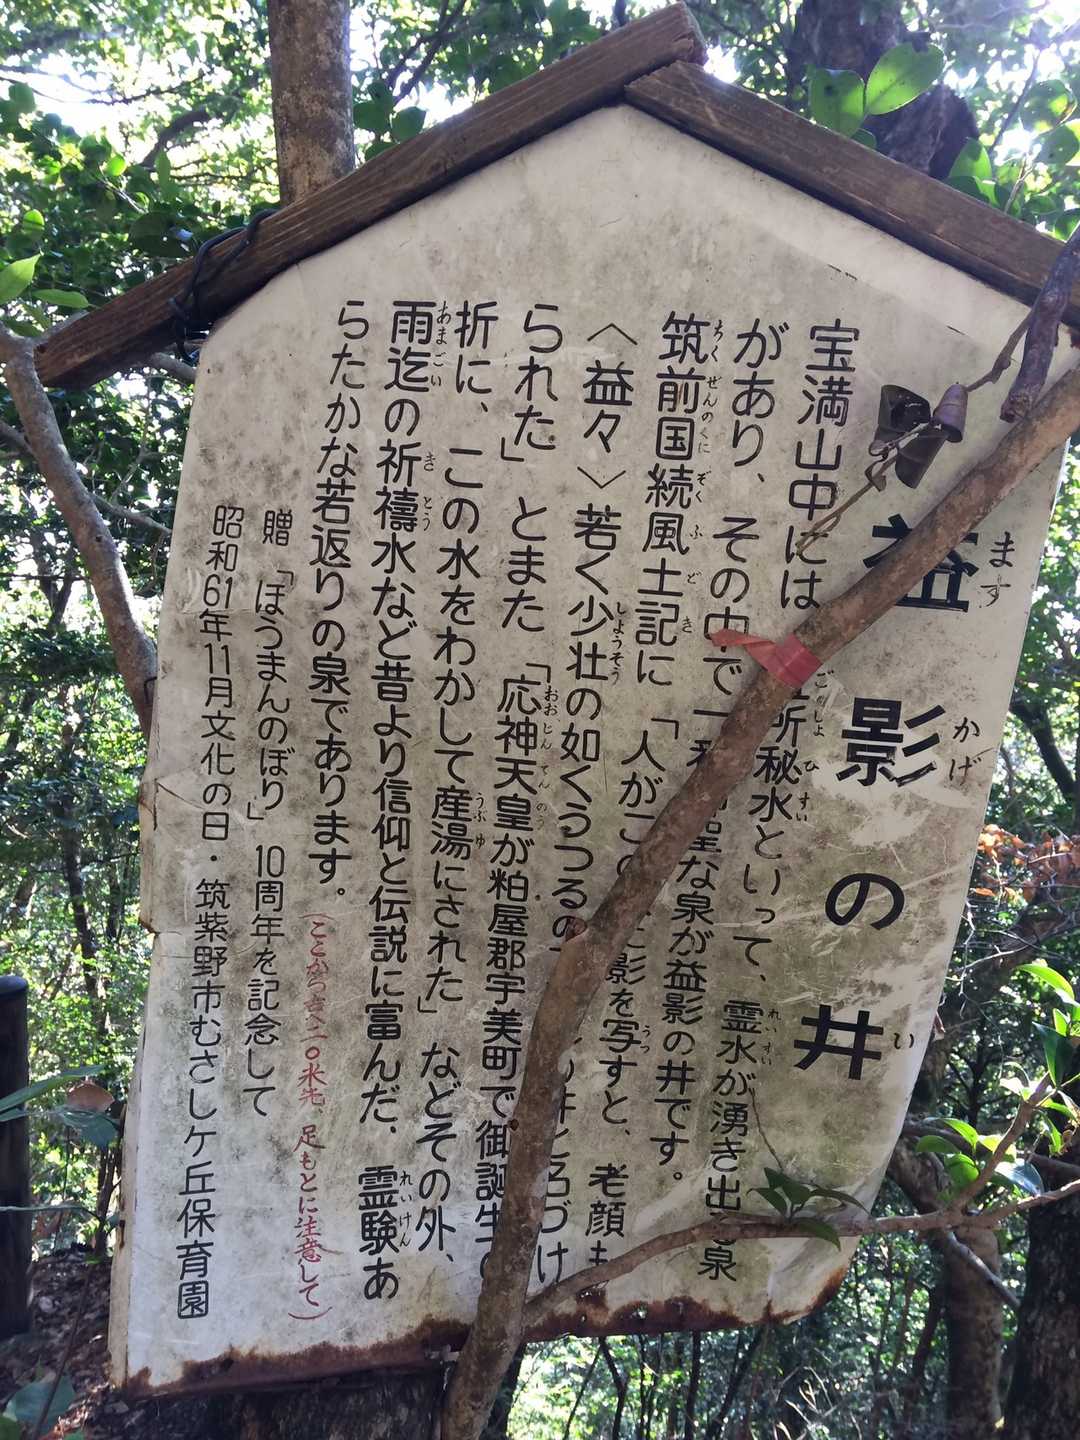 益影の井
ます かげ い
宝満山中には 所秘水といって、霊水が湧き出 泉
があり、その中で 聖な泉が益影の井です。
筑前国続風土記に「人がこの に影を写すと、老顔も
〈益々〉若く少壮の如くうつるの 井と名づけ
られた」とまた「応神天皇が粕屋郡宇美町で御誕生の
折に、この水をわかして産湯にされた」などその外、
雨迄の祈禱水など昔より信仰と伝説に富んだ、霊験あ
らたかな若返りの泉であります。
(ここから 二〇米先、足もとに注意して)
贈「ほうまんのぼり」10周年を記念して
昭和61年11月文化の日・筑紫野市むさしケ丘保育園